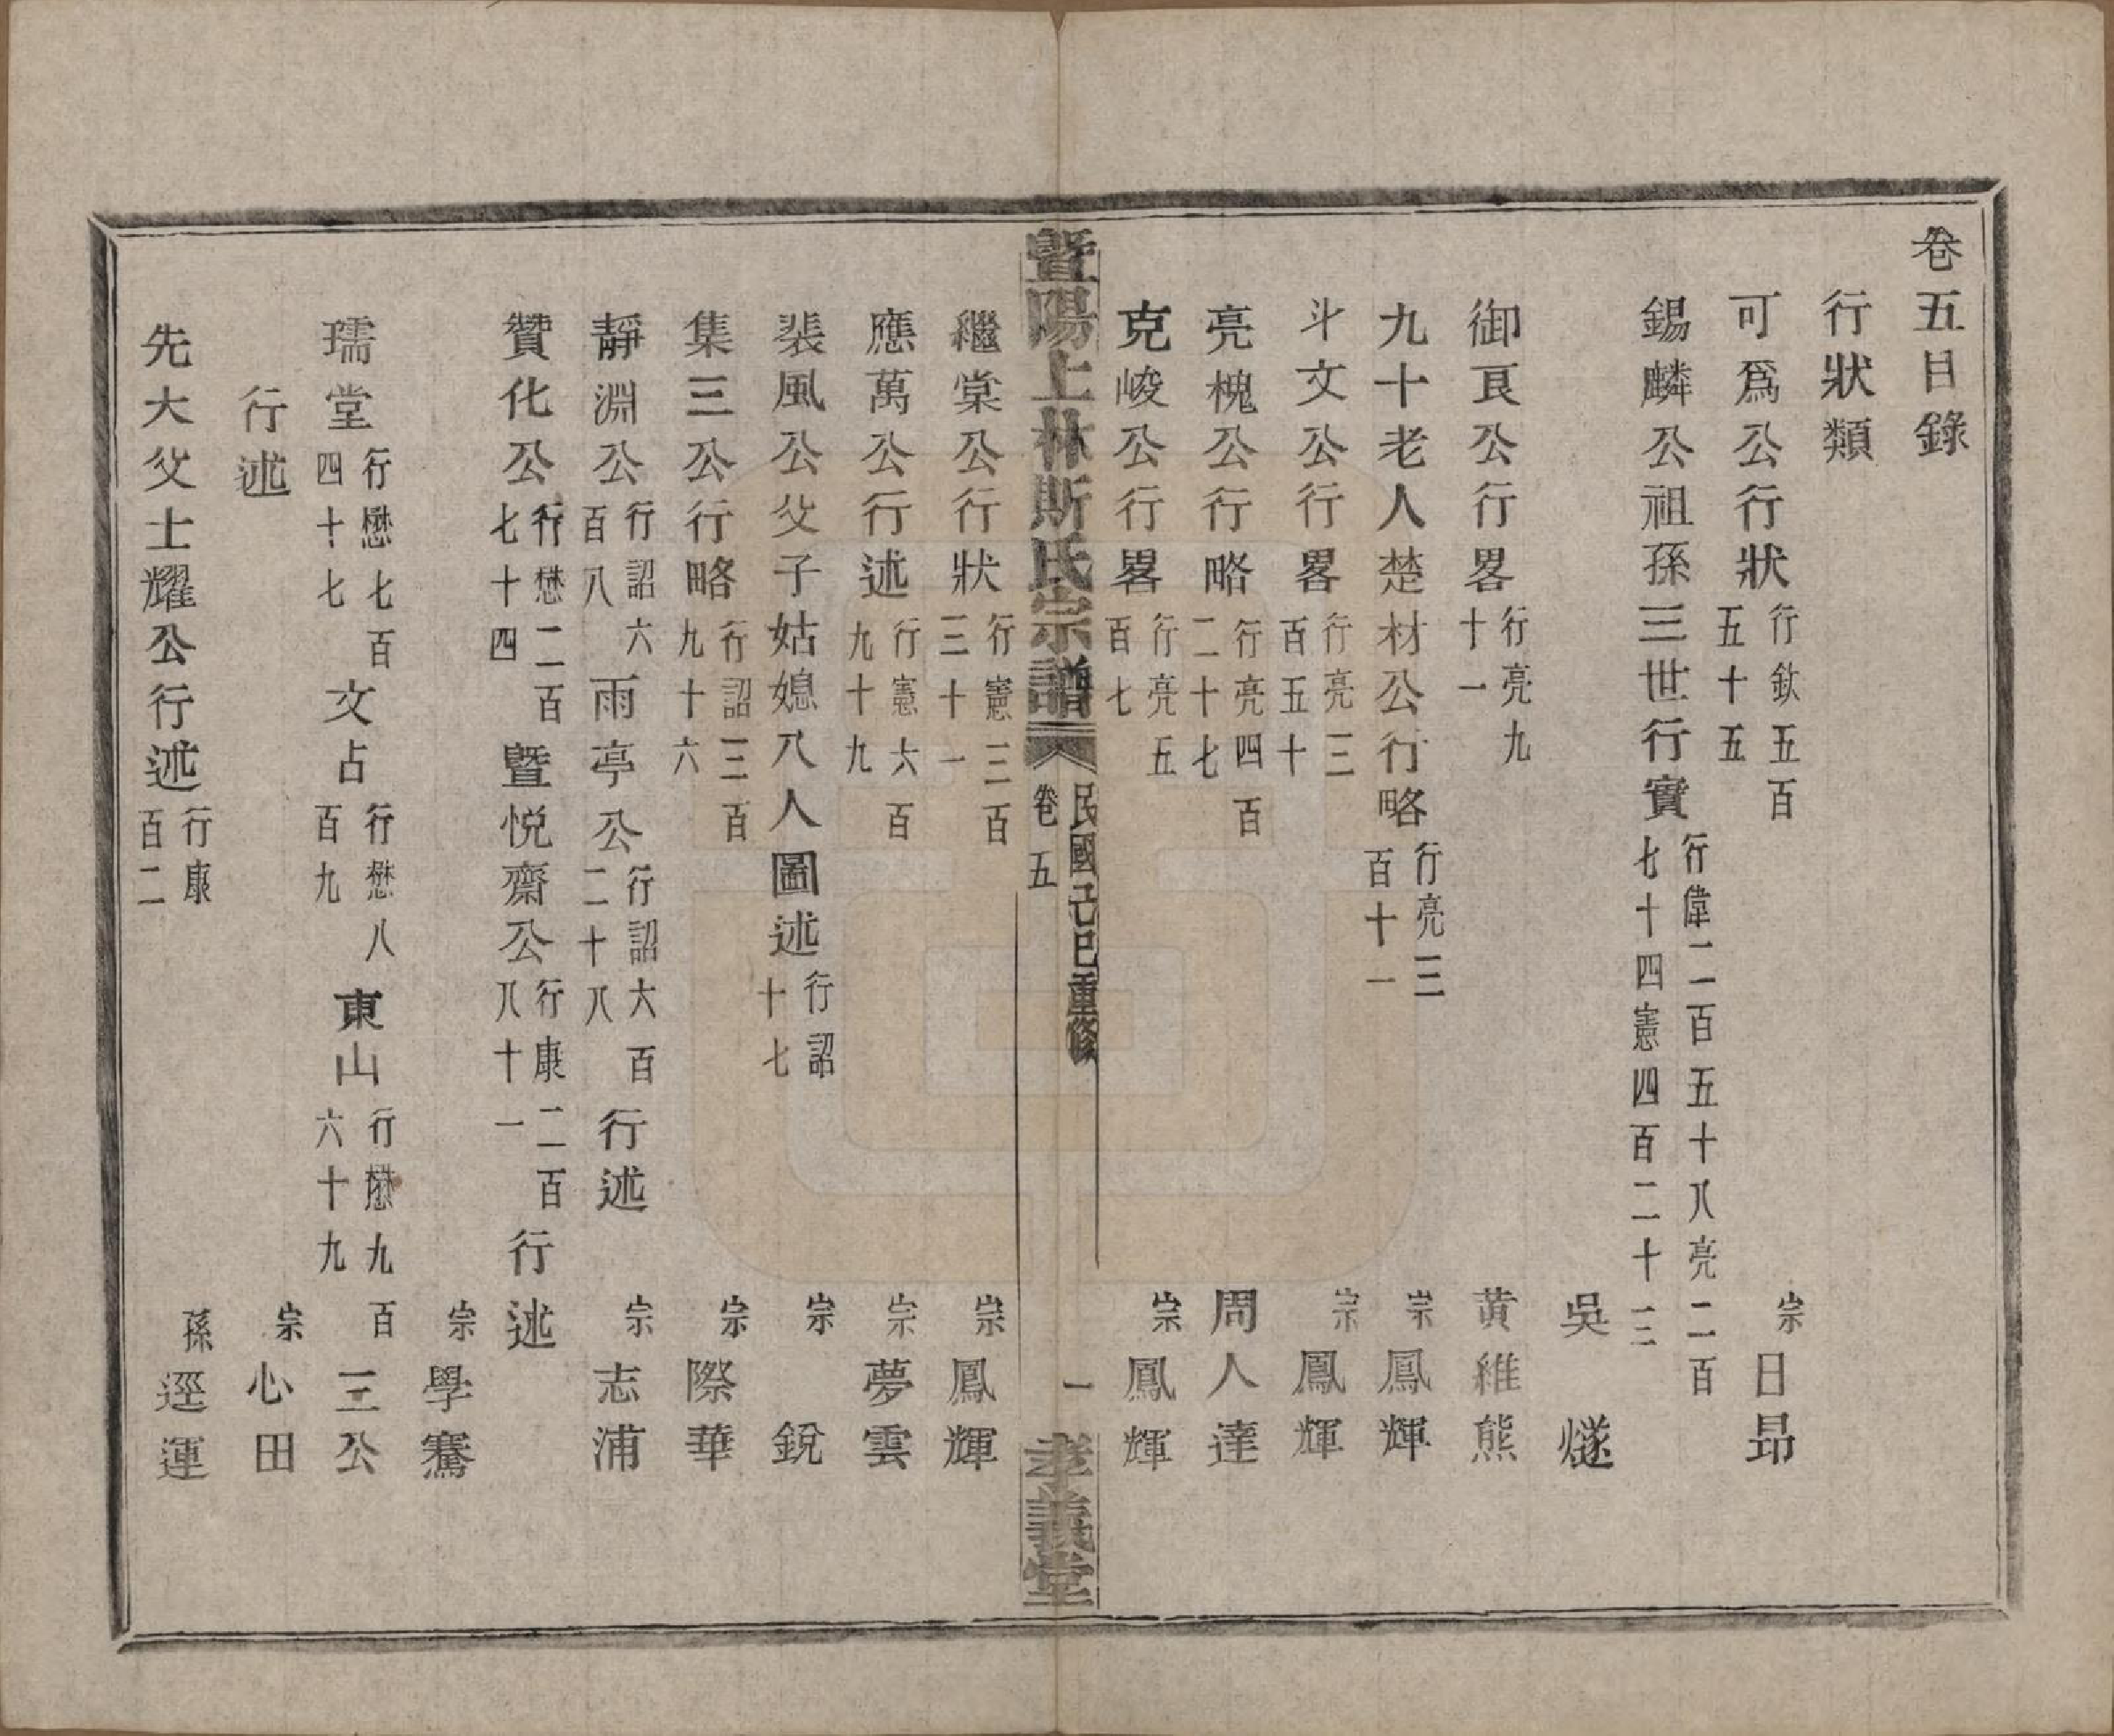 卷五目錄
行狀類
可爲公行狀行欽五百五十五 宗日昻
錫麟公祖孫三世行實行偉二百五十八亮二百七十四憲四百二十三
吳燧
御良公行畧行亮九十一 黃維熊
九十老人楚材公行略行亮三百十一 宗鳳輝
斗文公行畧行亮三百五十 宗鳳輝
亮槐公行略行亮四百二十七 周人達
克峻公行畧行亮五百七 宗鳳輝
暨陽上林斯氏宗譜 卷五 民國己巳重修 一 孝義堂
繼棠公行狀行憲三百三十一 宗鳳輝
應萬公行述行憲六百九十九 宗夢雲
裴風公父子姑媳八人圖述行詔十七 宗銳
集三公行略行詔三百九十六 宗際華
靜淵公行詔六百八雨亭公行詔六百二十八行述 宗志浦
贊化公行懋二百七十四暨悅齋公行康二百八十一行述
宗學騫
瑞堂行懋七百四十七文占行懋八百九東山行懋九百六十九三公
行述 宗心田
先大父士耀公行述行康百二 孫逕運